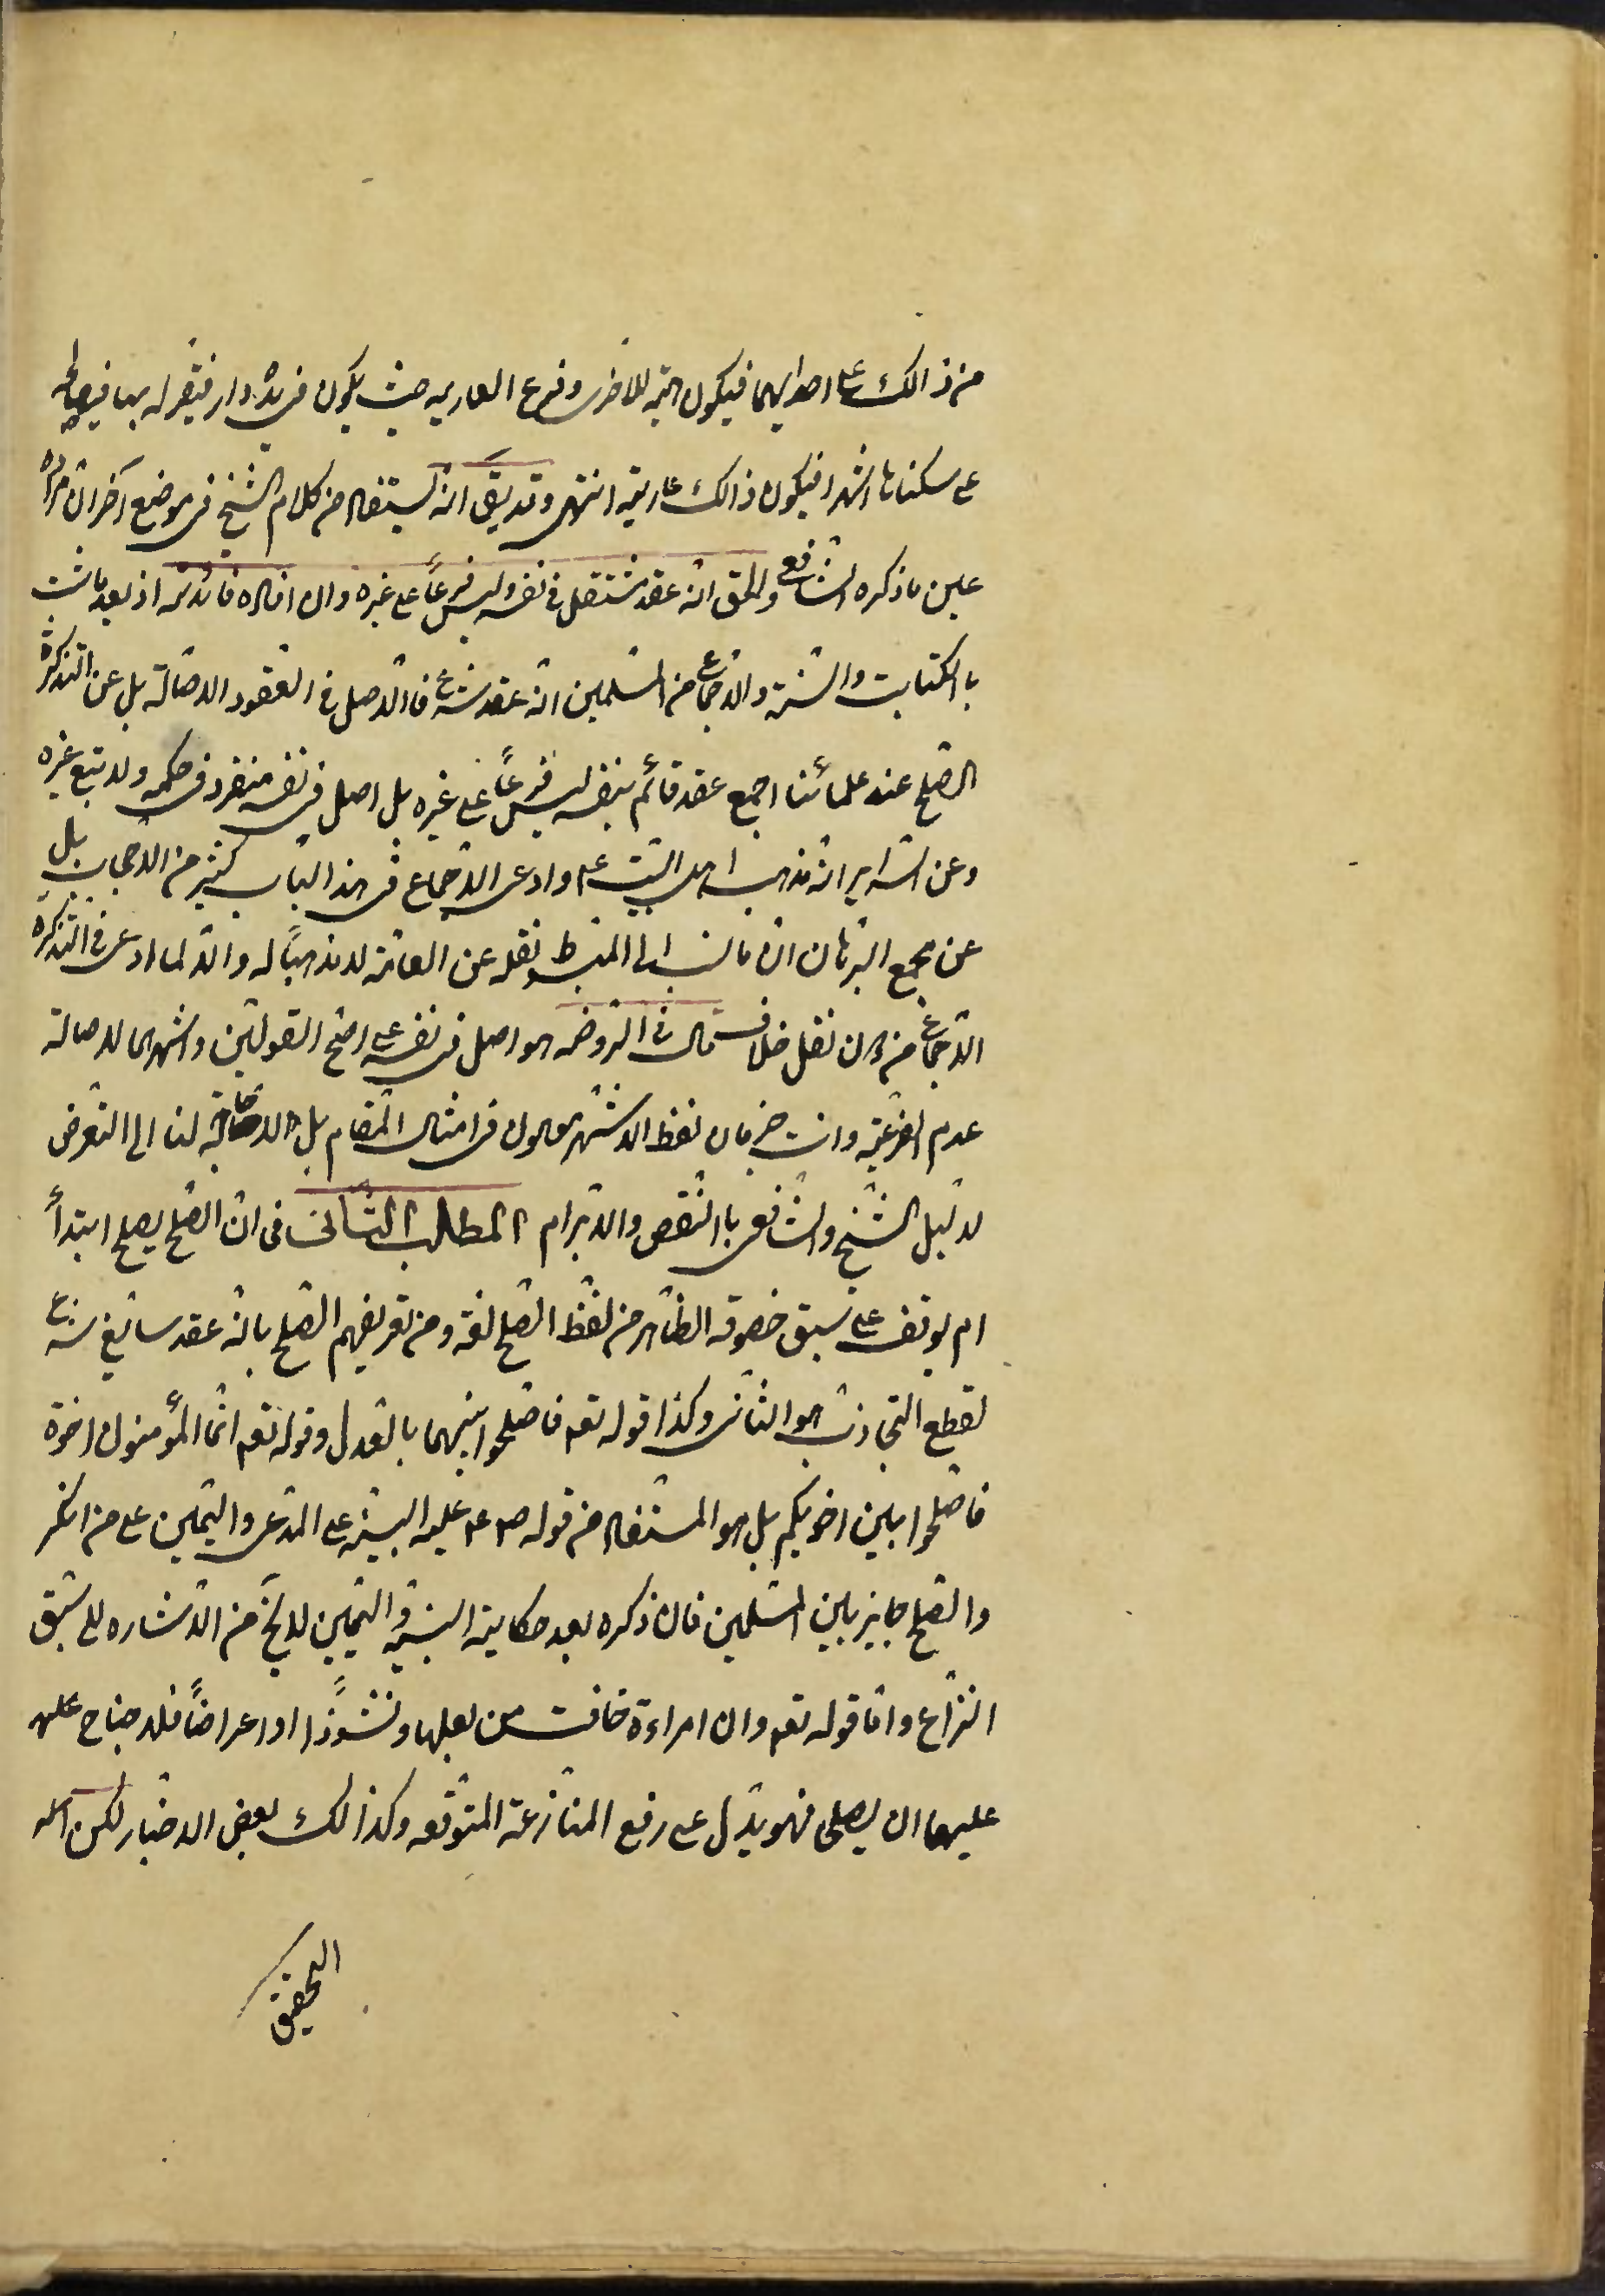 من ذالك على احدايهما فيكون هبة للاخرى وفرع العاريه حيث يكون فى يده دار فيقر له بها فيصالحه
على سكناها شهرا فيكون ذالك عارية انتهى وقد يق انه يستفاد من كلام الشيخ فى موضع آخر ان مراده
عين ما ذكره الشافعى والحق انه عقد مستقل فى نفسه وليس فرعاً على غيره وان افاده فائدته اذ بعد ما ثبت
با الكتاب والسنة والاجماع من المسلمين انه عقد شرع فا الاصل فى العقود الاصالة بل عن التذكرة
الصلح عند علمائنا اجمع عقد قائم بنفسه ليس فرعاً على غيره بل اصل فى نفسه منفرد فى حكمه ولا يتبع غيره
وعن السراير انه مذهب اهل البيت ع وادعى الاجماع فى هذا الباب كثير من الاصحاب بل
عن مجمع البرهان ان ما نسب الى المبسوط نقله عن العامة لا مذهباً له والا لما ادعى فى التذكرة
الاجماع من دون نقل خلاف قال فى الروضه هو اصل فى نفسه على اصح القولين واشهرهما لاصالة
عدم الفرعية وانت خبير بان لفظ الاشتهر معمول فى امثال المقام بل لا حاجة لنا الى التعرض
لدليل الشيخ والشافعى با النقص والابرام المطلب الثانى فى ان الصلح يصلح ابتدأً
ام يوقف على سبق خصومة الظاهر من لفظ الصلح لغة ومن تعريفهم الصلح بانه عقد سايغ شرع
لقطع التجاذب هو الثانى وكذا قوله تعم فاصلحوا بينهما بالعدل وقوله تعم انما المؤمنون اخوة
فاصلحوا بين اخويكم بل هو المستفاد من قوله ص ع عليه البينة على المدعى واليمين على من انكر
والصلح جايز بين المسلمين فان ذكره بعد حكاية البينة واليمين لا يخ من الاشاره الى سبق
النزاع واما قوله تعم وان امراءة خافت من بعلها ونشوذاً او اعراضاً فلا جناح عليه
عليهما ان يصلحى فهو يدل على رفع المنازعة المتوقعه وكذالك بعض الاخبار لكن
التحقيق